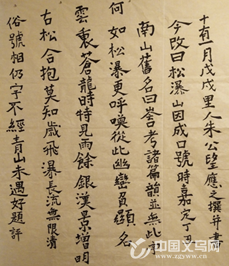 俗號相仍字不經青山未遇好題評
古松合抱莫知歲飛瀑長流無限清
雲裏蒼龍時特見雨餘銀漢景增明
何如松瀑更呼喚從此幽巒負顯名
南山舊名曰峇考諸篇韻並無此
今改曰松瀑山因成口號時嘉定丁
十有一月戊戌里人朱公望應之撰并書
中国义乌网